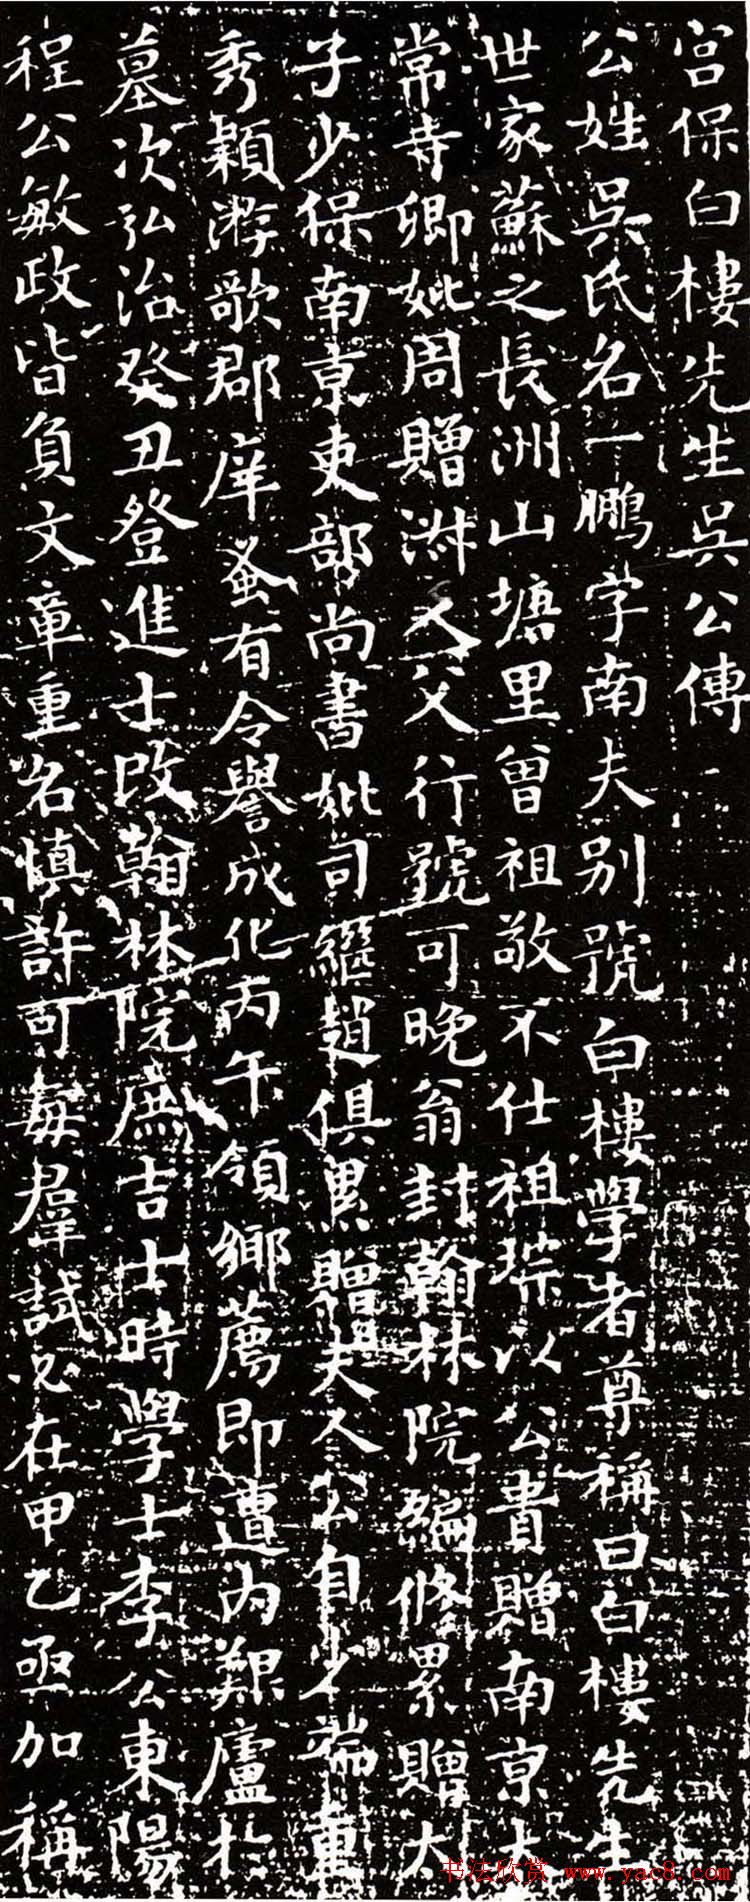 宮保白樓先生吳公傳
公姓吳氏名一鵬字南夫別號白樓學者尊稱曰白樓先生
世家蘇之長洲山塘里曾祖敬不仕祖琮以公貴贈南京太
常寺卿妣周贈淑人父行號可晚翁封翰林院編修累贈太
子少保南京吏部尚書妣司繼趙俱累贈夫人公自少端重
秀穎游歌郡庠蚤有令譽成化丙午領鄉薦即遭內艱廬於
墓次弘治癸丑登進士改翰林院庶吉士時學士李公東陽
程公敏政皆負文章重名慎許可每羣試必在甲乙亟加稱
书法欣赏 www.yac8.com